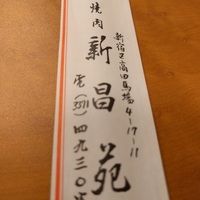 焼肉
新昌苑
新宿区高田馬場4-17-11
電(3371)四九三〇